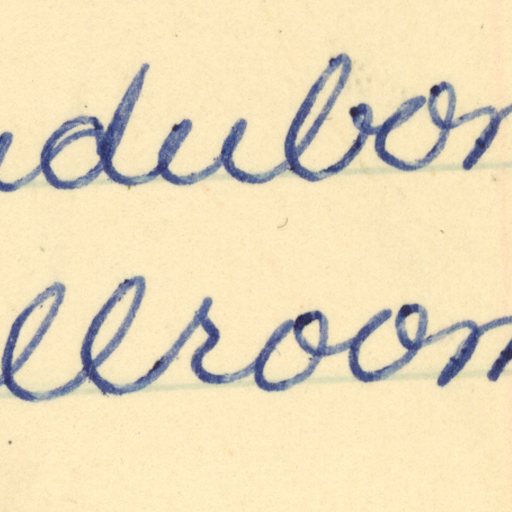 udubon
llroom